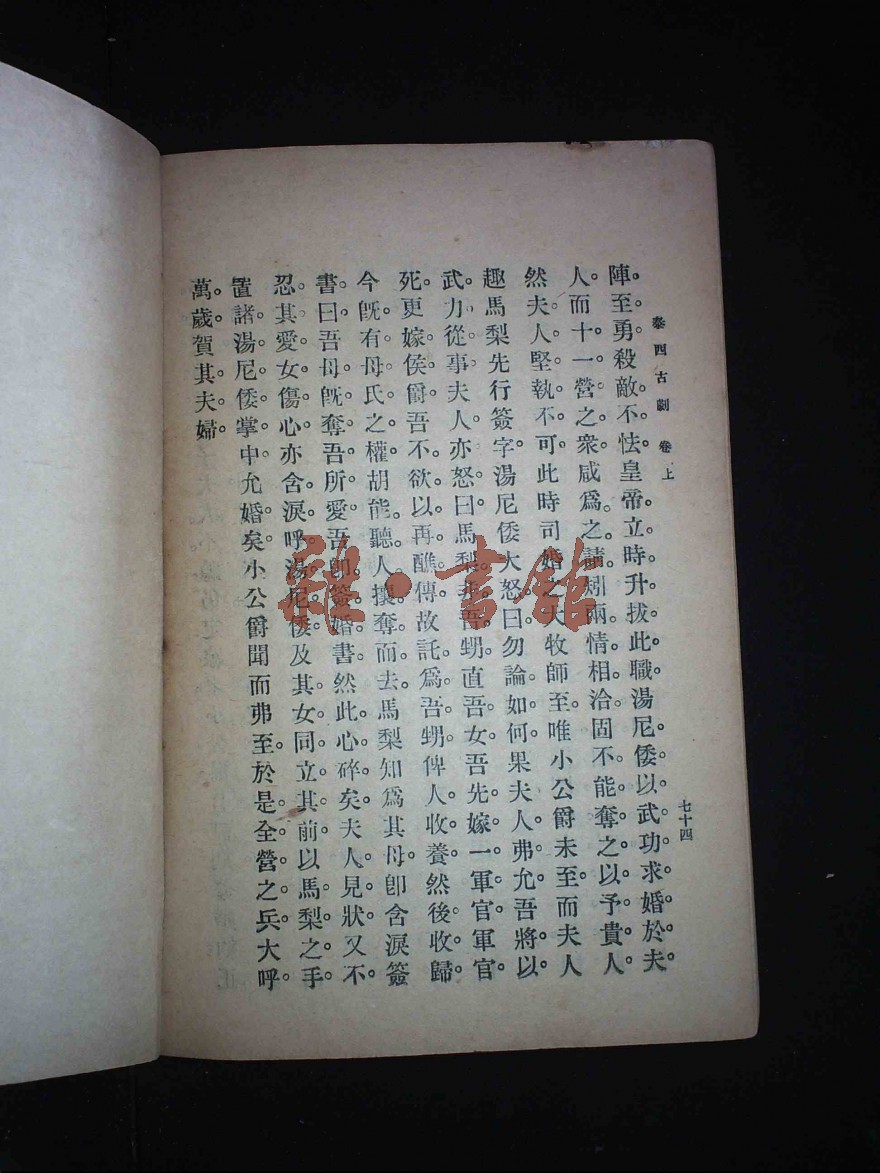 泰西古劇　卷上
七十四
陣。至勇。殺敵不怯。皇帝立時升拔此職。湯尼倭以武功求婚於夫
人。而十一營之衆。咸爲之請。矧兩情相洽。固不能奪之以予貴人。
然夫人堅執不可。此時司婚之大牧師至。唯小公爵未至。而夫人
趣馬梨先行簽字。湯尼倭大怒曰。勿論如何。果夫人弗允。吾將以
武力從事。夫人亦怒曰。馬梨非吾甥。直吾女。吾先嫁一軍官。軍官
死。更嫁侯爵。吾不欲以再醮傳。故託爲吾甥。俾人收養。然後收歸。
今旣有母氏之權。胡能聽人攘奪而去。馬梨知爲其母。卽含淚簽
書。曰。吾母旣奪吾所愛。吾卽簽婚書。然此心碎矣。夫人見狀。又不
忍其愛女傷心。亦含淚呼湯尼倭及其女同立其前。以馬梨之手。
置諸湯尼倭掌中。允婚矣。小公爵聞而弗至。於是全營之兵大呼。
萬歲。賀其夫婦。
雜·書館